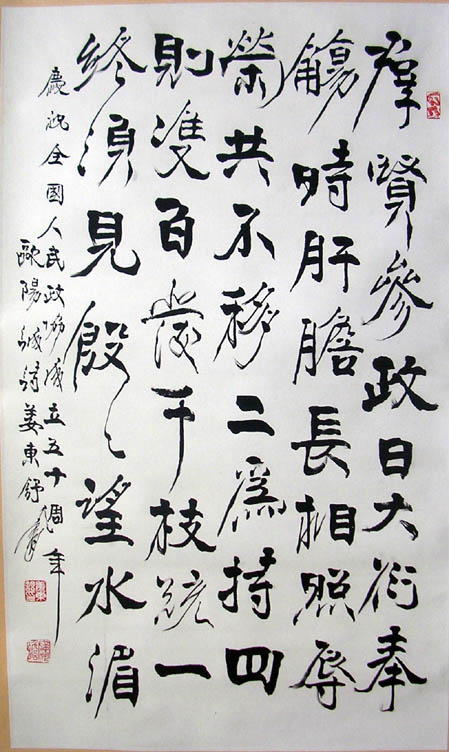 羣賢參政日大衍奉
觴時肝膽長相照辱
榮共不移二為持四
則雙百發千枝統一
終須見殷〻望水湄
慶祝全國人民政協成立五十週年
歐陽誠詩姜東舒書